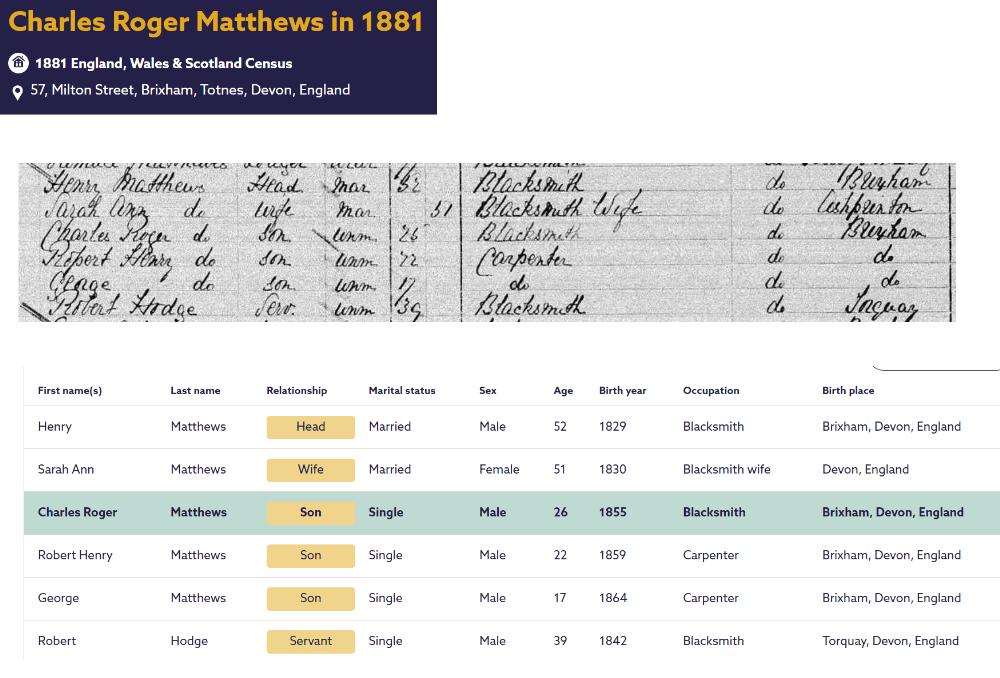 Charles Roger Matthews in 1881
1881 England, Wales & Scotland Census
57, Milton Street, Brixham, Totnes, Devon, England
Henry Matthews Head Mar 52 Blacksmith do Brixham
Sarah Ann do Wife Mar 51 Blacksmith Wife do Ashprinton
Charles Roger do Son Unm 26 Blacksmith do Brixham
Robert Henry do Son Unm 22 Carpenter do do
George do Son Unm 17 do do do
Robert Hodge Serv. Unm 39 Blacksmith do Torquay
First name(s) Last name Relationship Marital status Sex Age Birth year Occupation Birth place
Henry Matthews Head Married Male 52 1829 Blacksmith Brixham, Devon, England
Sarah Ann Matthews Wife Married Female 51 1830 Blacksmith wife Devon, England
Charles Roger Matthews Son Single Male 26 1855 Blacksmith Brixham, Devon, England
Robert Henry Matthews Son Single Male 22 1859 Carpenter Brixham, Devon, England
George Matthews Son Single Male 17 1864 Carpenter Brixham, Devon, England
Robert Hodge Servant Single Male 39 1842 Blacksmith Torquay, Devon, England